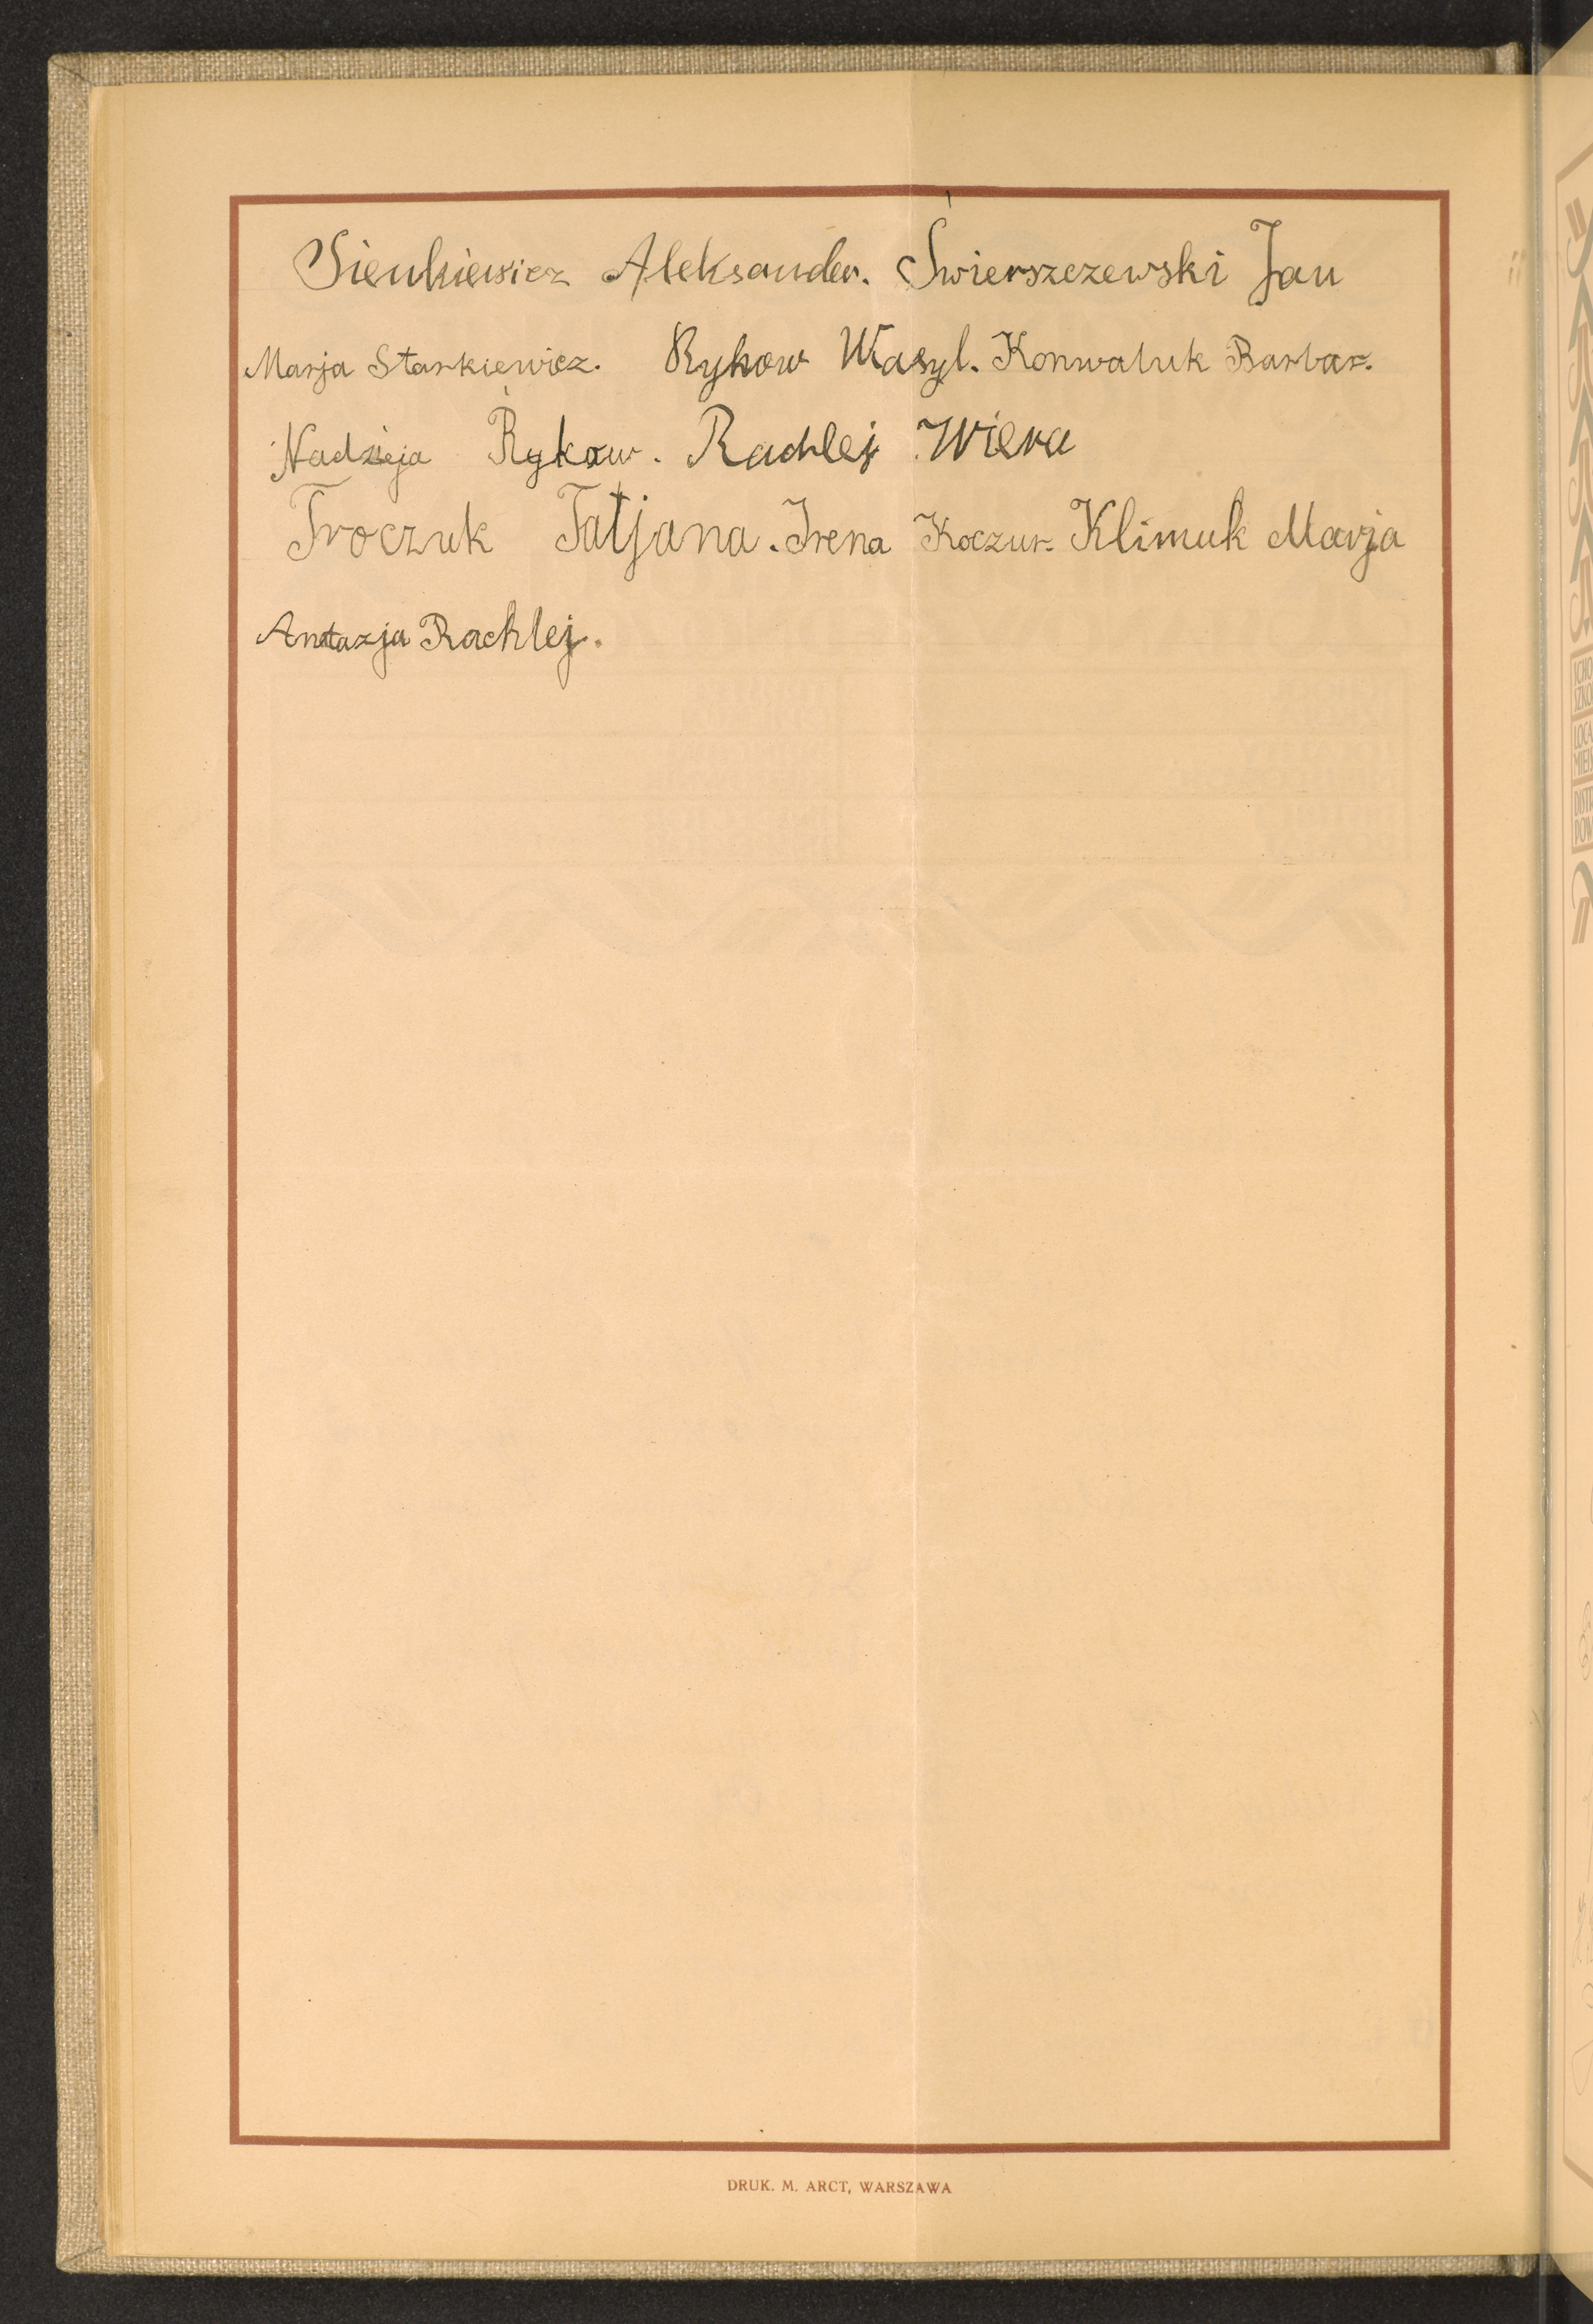 Sienkiewicz Aleksander. Świerszczewski Jan
Marja Stankiewicz. Rykow Wasyl. Konwaluk Barbar.
Nadzieja Rykow. Rachlej Wiera
Troczuk Tatjana. Irena Koczur. Klimuk Marja
Rachlej.
DRUK. M. ARCT, WARSZAWA